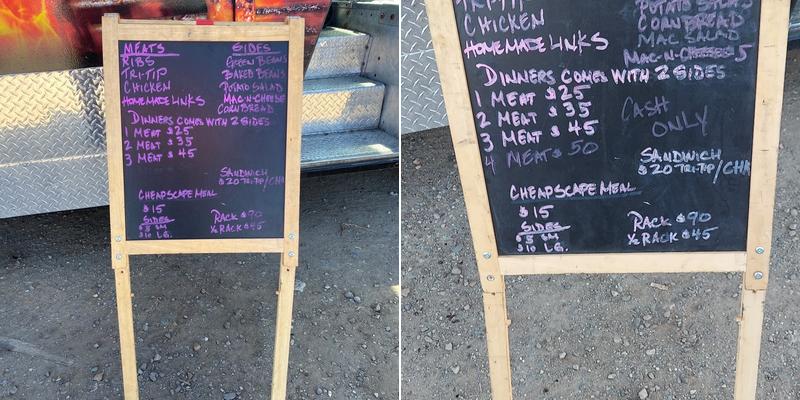 MEATS
RIBS
TRI-TIP
CHICKEN
HOMEMADE LINKS
SIDES
GREEN BEANS
BAKED BEANS
POTATO SALAD
MAC-N-CHEESE
CORNBREAD
DINNERS COMES WITH 2 SIDES
1 MEAT $25
2 MEAT $35
3 MEAT $45
SANDWICH
$20 TRI-TIP/CHK
CHEAPSCAPE MEAL
$15
SIDES
$5 SM
$10 LG.
RACK $90
½ RACK $45
TRI-TIP
CHICKEN
HOMEMADE LINKS
POTATO SALAD
CORNBREAD
MAC SALAD
MAC-N-CHEESE 5
DINNERS COMES WITH 2 SIDES
1 MEAT $25
2 MEAT $35
3 MEAT $45
4 MEATS 50
CASH
ONLY
SANDWICH
$20 TRI-TIP/CHK
CHEAPSCAPE MEAL
$15
SIDES
$5 SM
$10 LG.
RACK $90
½ RACK $45